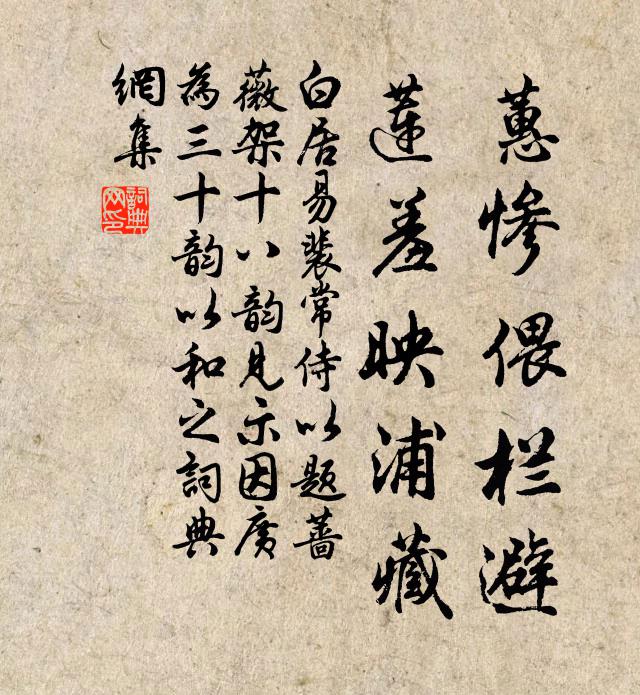 蕙惨偎栏避
莲羞映浦藏
白居易裴常侍以题蔷
薇架十八韵见示因广
为三十韵以和之词典
网集
词典网印